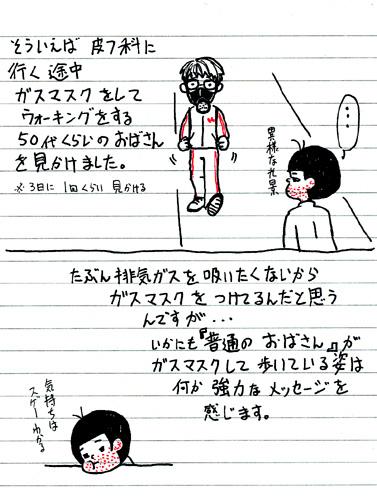 そういえば 皮フ科に
行く途中
ガスマスクをして
ウォーキングをする
50代くらいのおばさん
を見かけました。
※3日に1回くらい 見かける
・・・
異様な光景
たぶん排気ガスを吸いたくないから
ガスマスクをつけてるんだと思う
んですが・・・
いかにも『普通のおばさん』が
ガスマスクして歩いている姿は
何か強力なメッセージを
感じます。
気持ちは
スゲーわかる